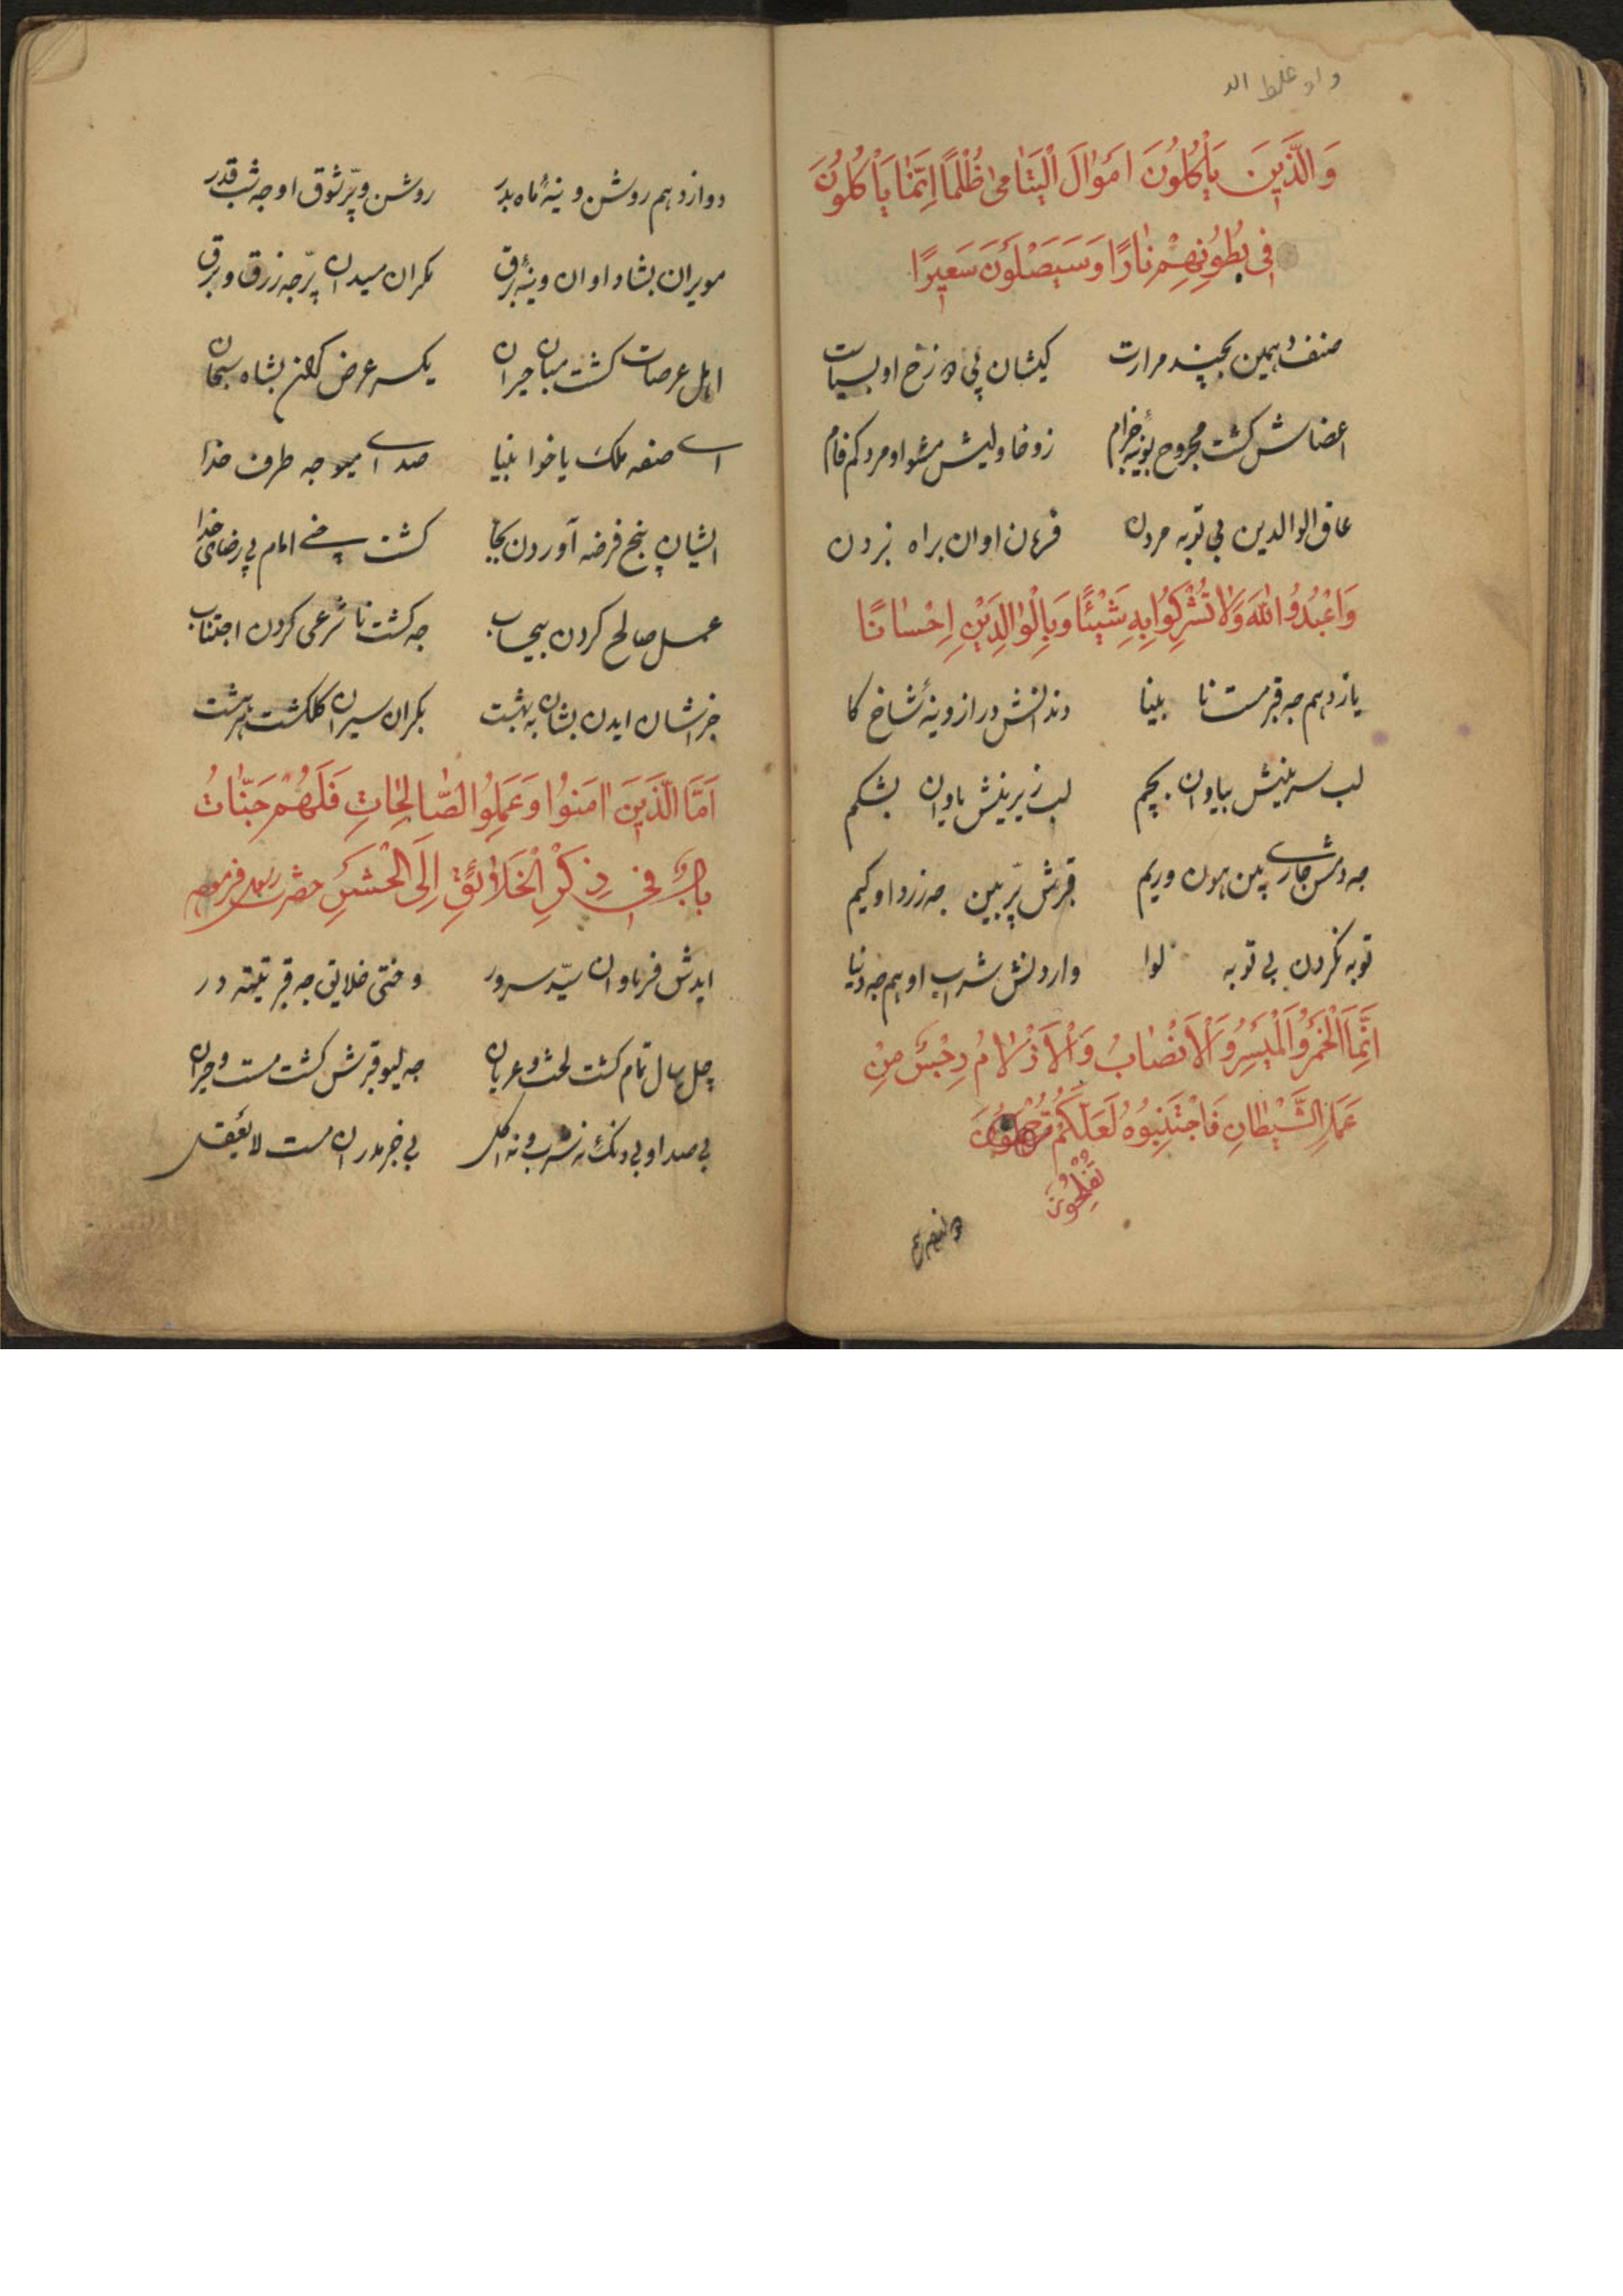 واو غلط الد
وَالَّذِينَ يَأْكُلُونَ اَمْوٰالَ الْيَتٰامىٰ ظُلْمًا اِنَّمٰا يَأْكُلُونَ
فِى بُطُونِهِمْ نٰارًا وَسَيَصْلَوْنَ سَعِيرًا
صنف دهمين بچند مرارت كيشان پى دوزخ او بسياست
اعضاش كشت مجروح بوينه خرام زوخاو ليش مشو او مردكم فام
عاق الوالدين بى توبه مردن فرمان اوان براه نبردن
وَاعْبُدُوا اللهَ وَلٰا تُشْرِكُوا بِهِ شَيْئًا وَبِالْوٰالِدَيْنِ اِحْسٰانًا
يازدهم جه قبر مست نا بلينا دندانش دراز وينهٔ شاخ كا
لب سرينش بياوان بچم لب زيرينش ياوان بشكم
جه دمش جارے پين هون وريم قبرش پّر بين جه زرداو كيم
توبه نكردن بى توبه لوا واردنش شراب اوهم جه دنيا
اِنَّمَا الْخَمْرُ وَالْمَيْسِرُ وَالْاَنْصٰابُ وَالْاَزْلٰامُ رِجْسٌ مِنْ
عَمَلِ الشَّيْطٰانِ فَاجْتَنِبُوهُ لَعَلَّكُمْ
تُفْلِحُونَ
دوازدهم روشن وينهٔ ماه بدر روشن و پّر شوق او جه شب قدر
مويران بشاد اوان وينهٔ برق مكران سيدان پّر جه زرق و برق
اهل عرصات كشت مبان حيران يكسر عرض كفتن بشاه سبحان
اے صنفه ملك يا خوا بلينا صداے ميو جه طرف خدا
ايشان پنج فرضه آوردن بجا كشت امام پى رضاى خدا
عمل صالح كردن بيحساب جه كشت نا شرعى كردن اجتناب
جزاشان ايدن بشان به بهشت بكران سيران كلكشت هر هشت
اَمَّا الَّذِينَ اٰمَنُوا وَعَمِلُوا الصّٰالِحٰاتِ فَلَهُمْ جَنّٰاتُ
بابٌ فِى ذِكْرِ الْخَلٰائِقِ اِلَى الْحَشْرِ حضرت رسول فرموه
ايدش فرماوان سيّد سرور وختى خلايق جه قبر تيته در
چل سال تمام كشت لخت و عريان جه ليو قبرش كشت مست و حيران
بى صدا و بى دنك نه شرب و نه اكل بى خبر مدران مست لايعقل